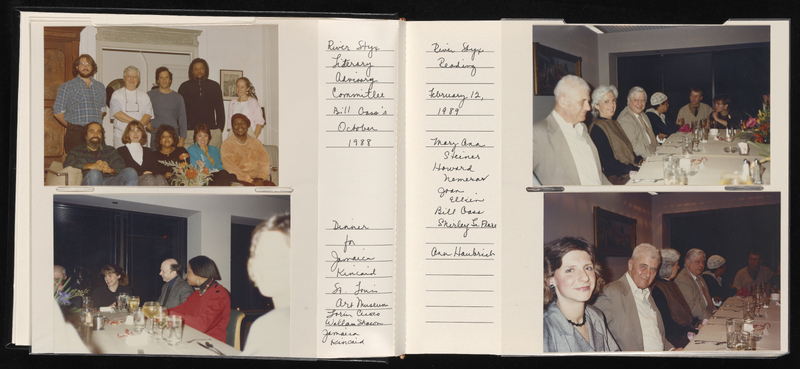 River Styx
Literary
Advisory
Committee
Bill Gass's
October
1988
Dinner
for
Jamaica
Kincaid
St. Louis
Art Museum
Lorin Cuoco
Jamaica
Kincaid
River Styx
Reading
February 12,
1989
Mary Ann
Steiner
Howard
Nemerov
Joan
Elkin
Bill Gass
Shirley Le Flore
Ann Haubrich